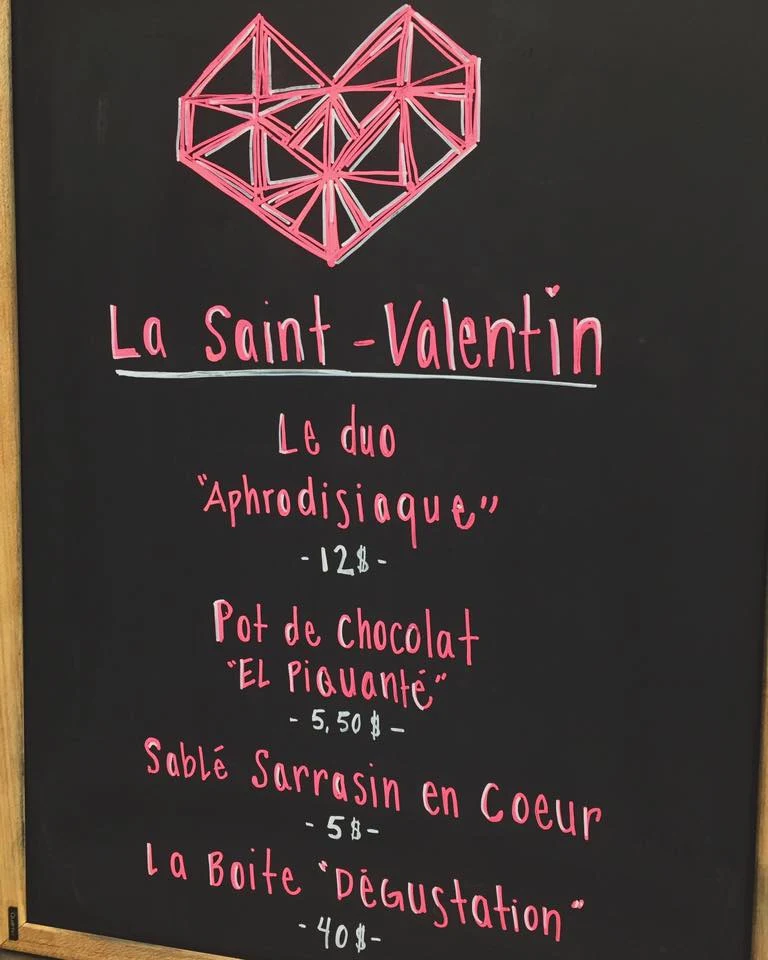 La Saint-Valentin
Le duo
"Aphrodisiaque"
-12$-
Pot de chocolat
"EL PiQuanté"
- 5,50 $ -
Sablé Sarrasin en Coeur
- 5$-
La Boite "DÉGustation"
-40$-